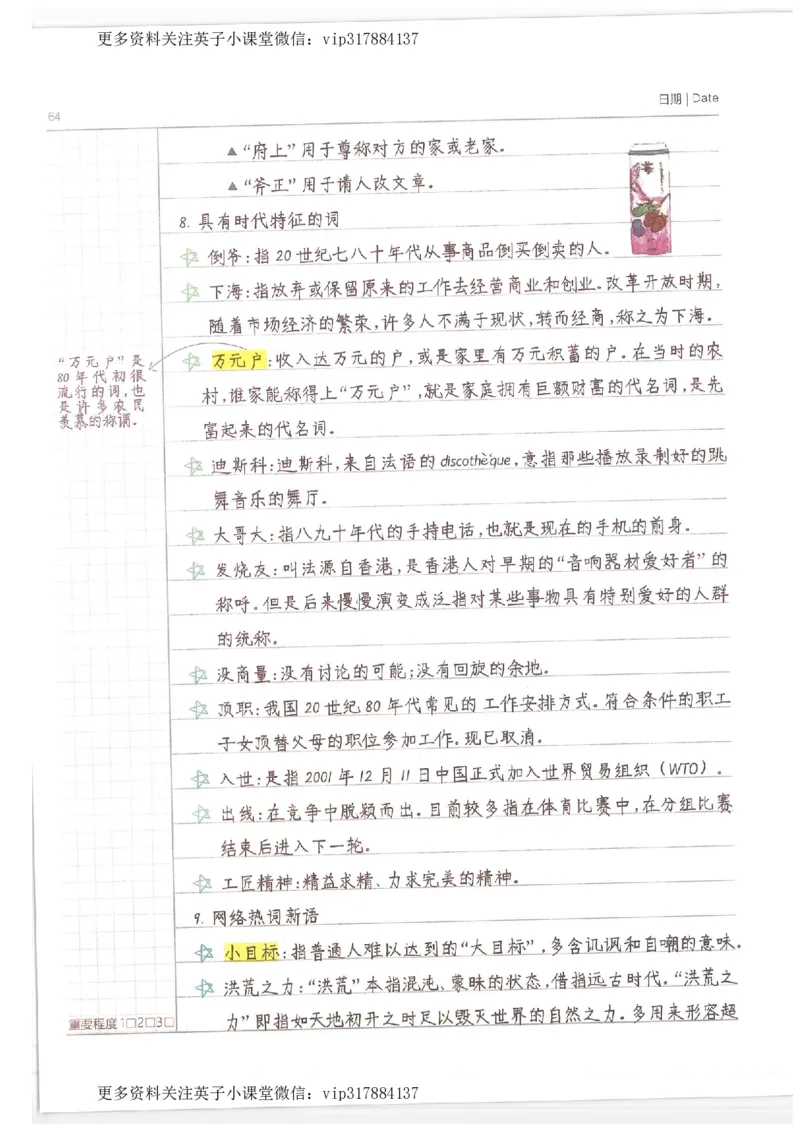 更多资料关注英子小课堂微信：vip317884137
日期 | Date
64
▲“府上”用于尊称对方的家或老家。
▲“斧正”用于请人改文章。
8. 具有时代特征的词
倒爷：指20世纪七八十年代从事商品倒买倒卖的人。
下海：指放弃或保留原来的工作去经营商业和创业。改革开放时期，
随着市场经济的繁荣，许多人不满于现状，转而经商，称之为下海。
万元户：收入达万元的户，或是家里有万元积蓄的户。在当时的农
村，谁家能称得上“万元户”，就是家庭拥有巨额财富的代名词，是先
富起来的代名词。
“万元户”是
80年代初很
流行的词，也
是许多农民
羡慕的称谓。
迪斯科：迪斯科，来自法语的discothèque，意指那些播放录制好的跳
舞音乐的舞厅。
大哥大：指八九十年代的手持电话，也就是现在的手机的前身。
发烧友：叫法源自香港，是香港人对早期的“音响器材爱好者”的
称呼。但是后来慢慢演变成泛指对某些事物具有特别爱好的人群
的统称。
没商量：没有讨论的可能；没有回旋的余地。
顶职：我国20世纪80年代常见的工作安排方式。符合条件的职工
子女顶替父母的职位参加工作。现已取消。
入世：是指2001年12月11日中国正式加入世界贸易组织（WTO）。
出线：在竞争中脱颖而出。目前较多指在体育比赛中，在分组比赛
结束后进入下一轮。
工匠精神：精益求精、力求完美的精神。
9. 网络热词新语
小目标：指普通人难以达到的“大目标”，多含讥讽和自嘲的意味。
洪荒之力：“洪荒”本指混沌、蒙昧的状态，借指远古时代。“洪荒之
力”即指如天地初开之时足以毁灭世界的自然之力。多用来形容超
重要程度 1□2□3□
更多资料关注英子小课堂微信：vip317884137